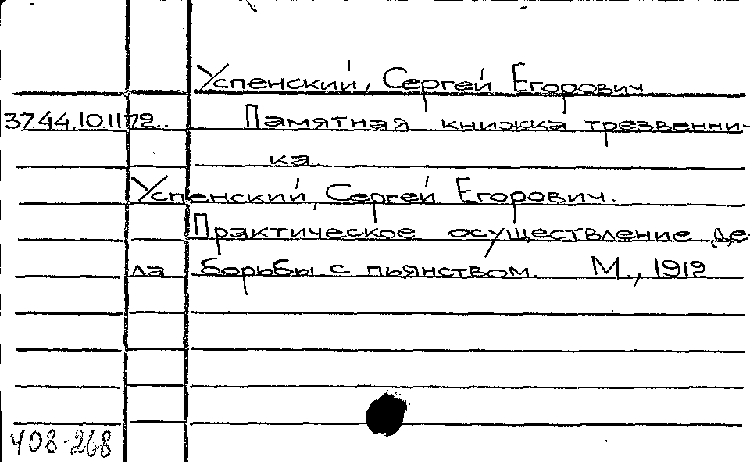 Успенский, Сергей Егорович
37.44.10.1172. Памятная книжка трезвенни-
ка.
Успенский, Сергей Егорович.
Практическое осуществление де-
ла борьбы с пьянством. М., 1912
408-268